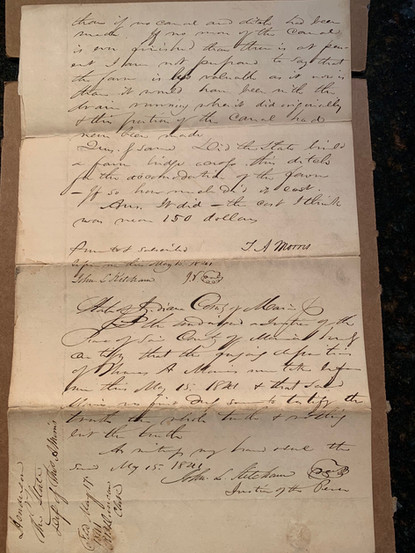 than if no canal and ditch had been
made If no more of the Canal
is ever finished than there is at pres-
ent I am not prepared to say that
the farm is as valuable as it now is
than it would have been with the
drain running where it did originally
& this portion of the Canal had
never been made
Ques. by same Did the State build
a farm bridge across this ditch
for the accommodation of the farm
– If so how much did it cost.
Ans. It did – the cost I think
was near 150 dollars
T. A. Morris
Sworn to & subscribed
before me this May 15 1841
John L Ketcham J.P.
State of Indiana County of Marion
I the undersigned a Justice of the
Peace of said County of Marion
certify that the foregoing deposition
of Thomas A Morris was taken before
me this May 15. 1841 & that said
Morris was first duly sworn to testify the
truth the whole truth & nothing
but the truth
As witness my hand & seal this
said May 15. 1841
John L Ketcham
Justice of the Peace
Henderson
vs
The State
Dep of Thos A Morris
Filed May 17
1841
Clerk